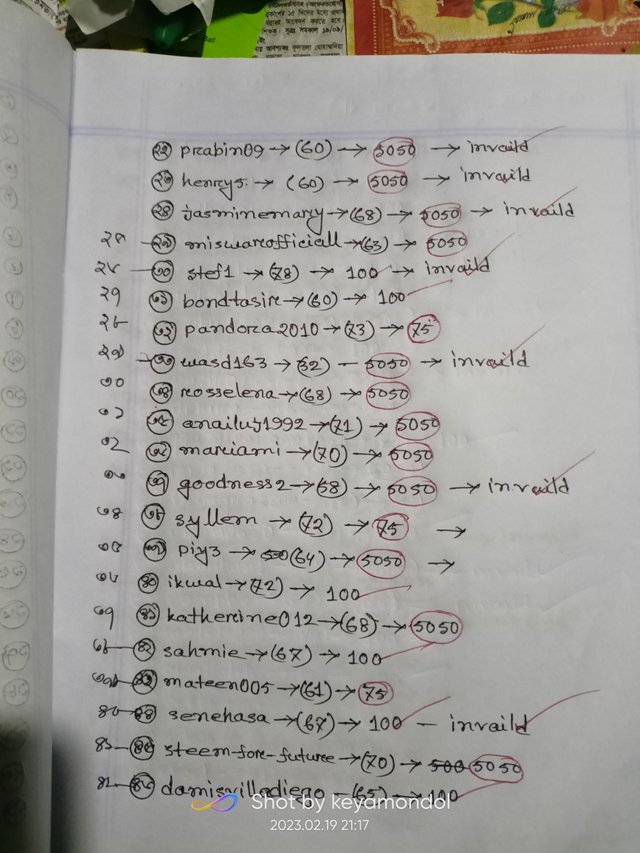 prabin09 → (60) → 5050 → invaild
২৭ henry5 → (60) → 5050 → invaild
২৮ jasminemary → (68) → 5050 → invaild
২৯ miswarofficiall → (63) → 5050
৩০ stef1 → (78) → 100 → invaild
২৭ ৩১ bondtasin → (60) → 100
২৮ ৩২ pandora2010 → (73) → 75
২৯ ৩৩ wasd163 → (52) – 5050 → invaild
৩০ ৩৪ rosselena → (68) → 5050
৩১ ৩৫ anailuj1992 → (71) → 5050
৩২ ৩৬ mariami → (70) → 5050
৩৩ ৩৭ goodness2 → (58) → 5050 → invaild
৩৪ ৩৮ syllem → (72) → 75 →
৩৫ ৩৯ piy3 → (64) → 5050 →
৩৬ ৪০ ikwal → (72) → 100
৩৭ ৪১ katherine012 → (68) → 5050
৩৮ ৪২ sahmie → (67) → 100
৩৯ ৪৩ mateen005 → (61) → 75
৪০ ৪৪ senehasa → (67) → 100 – invaild
৪১ ৪৫ steem-fore-future → (70) → 500 5050
৪২ ৪৬ damisvilladiego – (65) → 100
Shot by keyamondol
2023.02.19 21:17